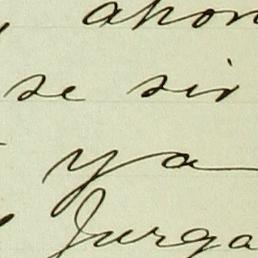 ahor
se sir
ya
Jurga